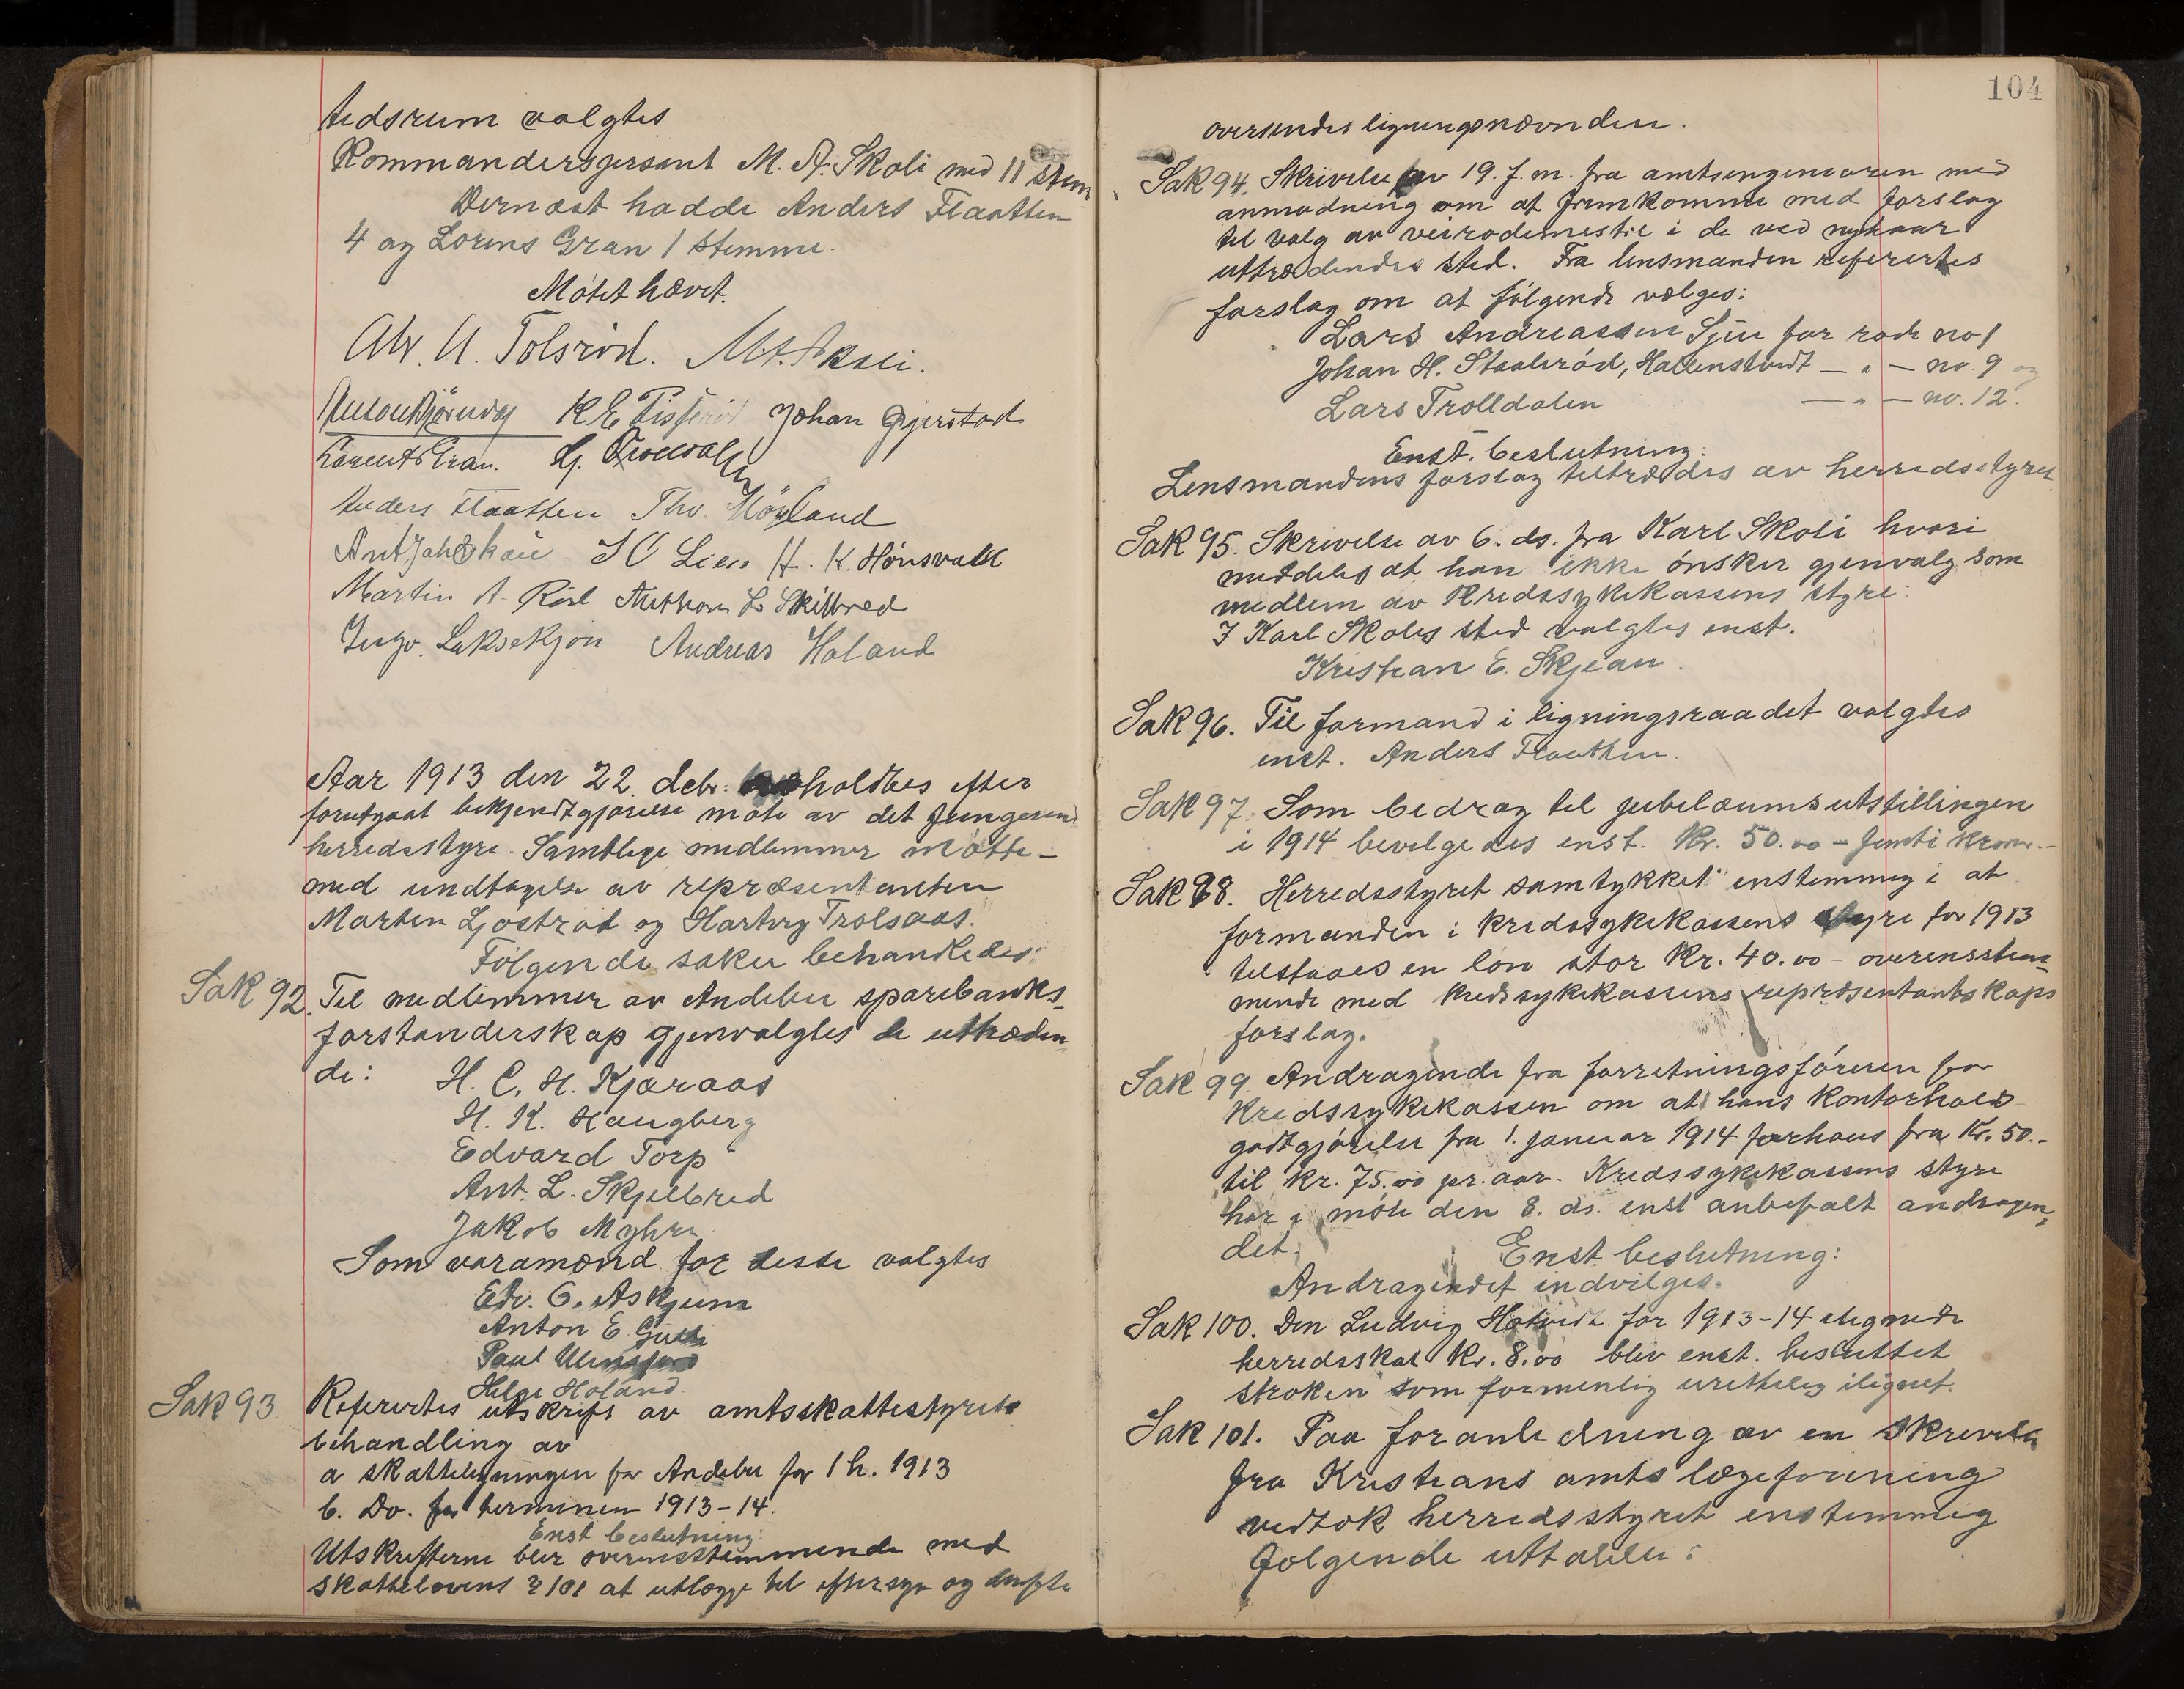 tidsrum valgtes
Kommandersersant M. A. Skoli med 11 stem
Dernæst hadde Anders Flaatten
4 og Lorens Gran 1 stemme.
Møtet hævet.
Alv. A. Tolsrød. M. A. Skoli.
Johan Gjerstad
Lorents Gran.
Anders Flaatten Thv. Høyland
Lien H. K. Hønsvald
Martin A. Røsl Anthon L. Skilbred
Ingv. Andreas Holand
Aar 1913 den 22. debr. holdtes efter
forutgaat bekjendtgjørelse møte av det fungerend
herredsstyre. Samtlige medlemmer møtte –
med undtagelse av repræsentanten
Marten Ljøstrad og Hartvig Trolsaas.
Følgende saker behandledes:
Sak 92. Til medlemmer av Andebu sparebanks-
forstanderskap gjenvalgtes de uttræden
de: H. C. H. Kjæraas
H. K. Haugberg
Edvard Torp
Ant. L. Skjelbred
Jakob Myhre
Som varamænd for desse valgtes
Edv. E. Askjem
Anton E. Gulli
Paul
Helge Holand.
Sak 93. Refertes utskrift av amtsskattestyrets
behandling av
a skatteligningen for Andebu for 1 h. 1913
b. Do. for terminen 1913-14.
Enst beslutning:
Utskrifterne blir overensstemmende med
skattelovens § 101 at utlægge til eftersyn og derefte
104
oversendes ligningsnævnden.
Sak 94. Skrivelse av 19. f. m. fra amtsingeniøren med
anmodning om at fremkomme med forslag
til valg av veirodemestre i de ved nytaar
uttrædendes sted. Fra lensmanden refertes
forslag om at følgende vælges:
Lars Andreassen Sjue for rode no 1
Johan H. Staalerød, Hallenstvedt — " — no. 9 og
Lars Trolldalen — " — no. 12.
Enst. beslutning:
Lensmandens forslag tiltrædes av herredsstyret
Sak 95. Skrivelse av 6. ds. fra Karl Skoli hvori
meddeles at han ikke ønsker gjenvalg som
medlem av Kredssykekassens styre.
I Karl Skolis sted valgtes enst.
Kristian E. Skjeau.
Sak 96. Til formand i ligningsraadet valgtes
enst. Anders Flaatten.
Sak 97. Som bedrag til jubelæumsutstillingen
i 1914 bevilgedes enst. Kr. 50.00 – femti kroner.–
Sak 98. Herredsstyret samtykket enstemmig i at
formanden i kredssykekassens styre for 1913
tilstaaes en løn stor Kr. 40.00 – overensstem-
mende med kredssykekassens repræsentantskaps
forslag.
Sak 99. Andragende fra forretningsføreren for
Kredssykekassen om at hans kontorhold
godtgjørelse fra 1. januar 1914 forhøies fra Kr. 50.-
til kr. 75.00 pr. aar. Kredssykekassens styre
har i møte den 8. ds. enst anbefalt andragen-
det. Enst beslutning:
Andragendet indvilges.
Sak 100. Den Ludvig Hotvedt for 1913-14 ilignede
herredsskat Kr. 8.00 blev enst. besluttet
strøken som formentlig urettelig ilignet.
Sak 101. Paa foranledning av en skrivelse
fra Kristians amts lægeforening
vedtok herredsstyret enstemmig
følgende uttalelse: